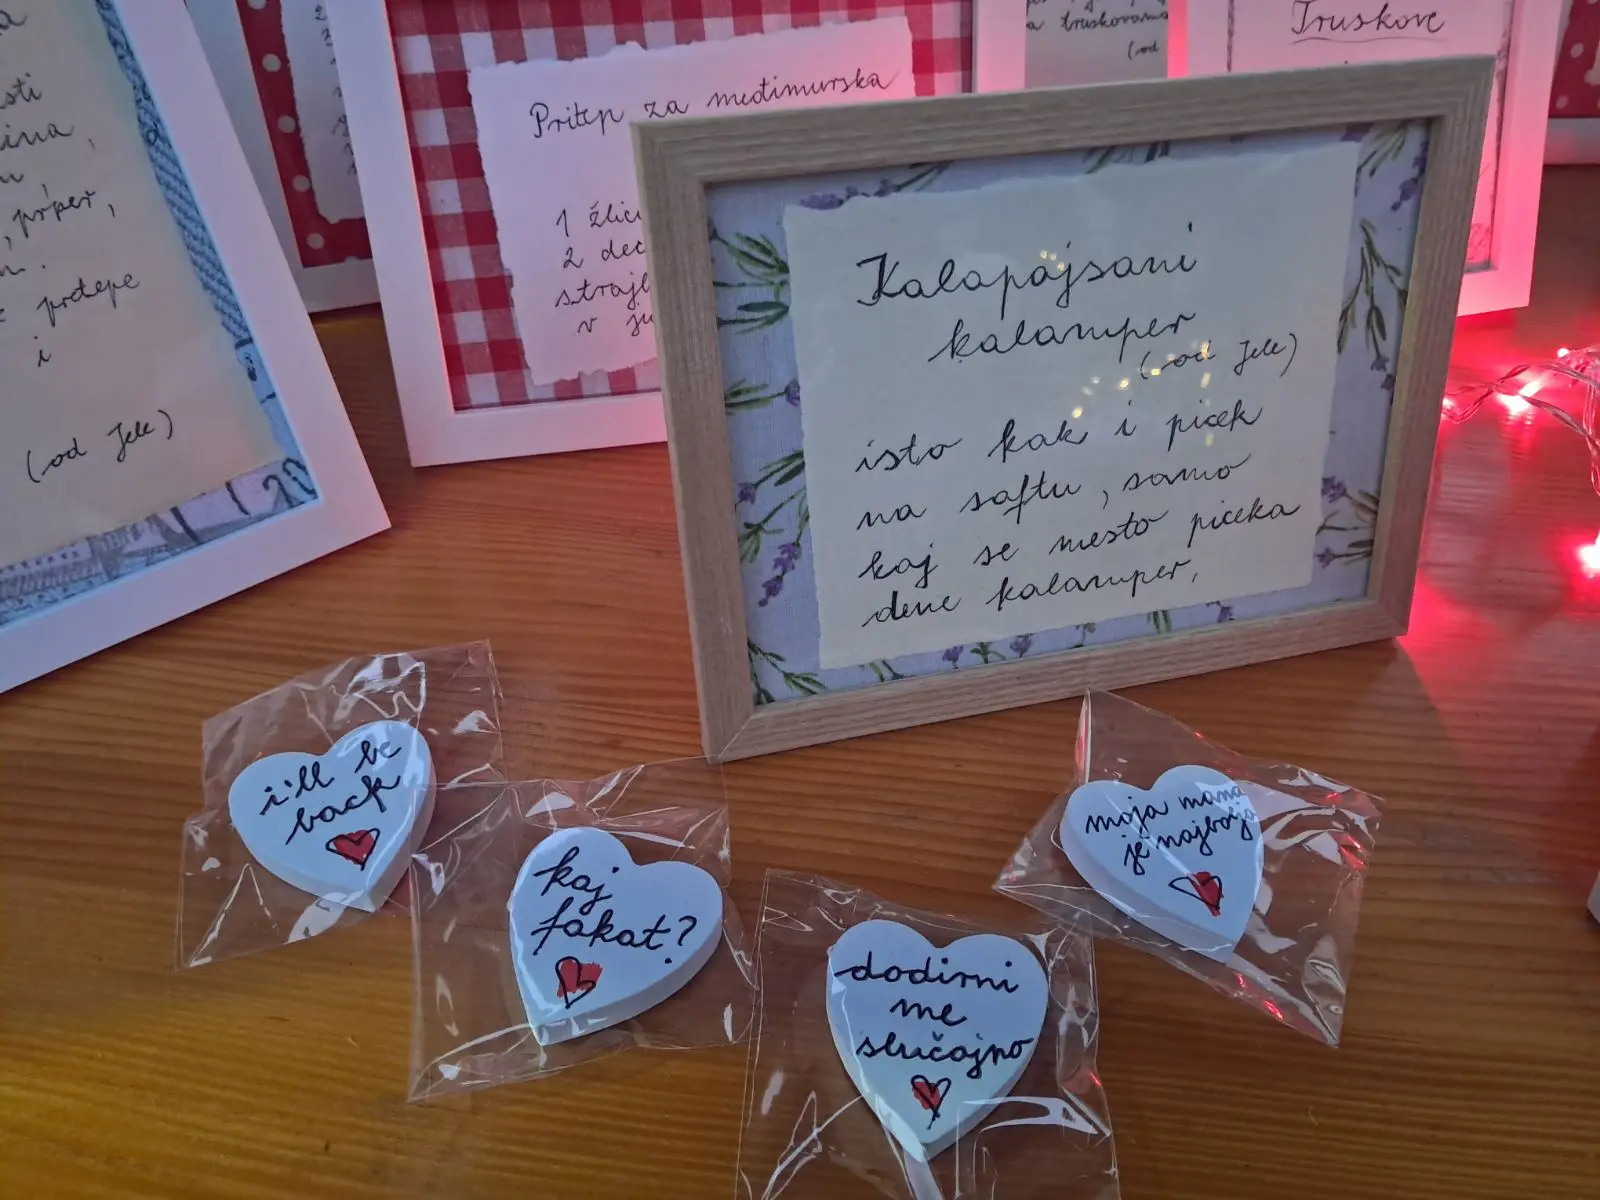 sti
prper,
prdepe
i
(od Jele)
Pritep za međimurska
1 žlic
2 dec
strajb
v ju
a truskovama
(od
Truskove
Kalapajsani
kalamper
(od Jele)
isto kak i picek
na saftu, samo
kaj se mesto piceka
dene kalamper,
i'll be
back
kaj
fakat?
dodirni
me
slučajno
moja mama
je najbolja